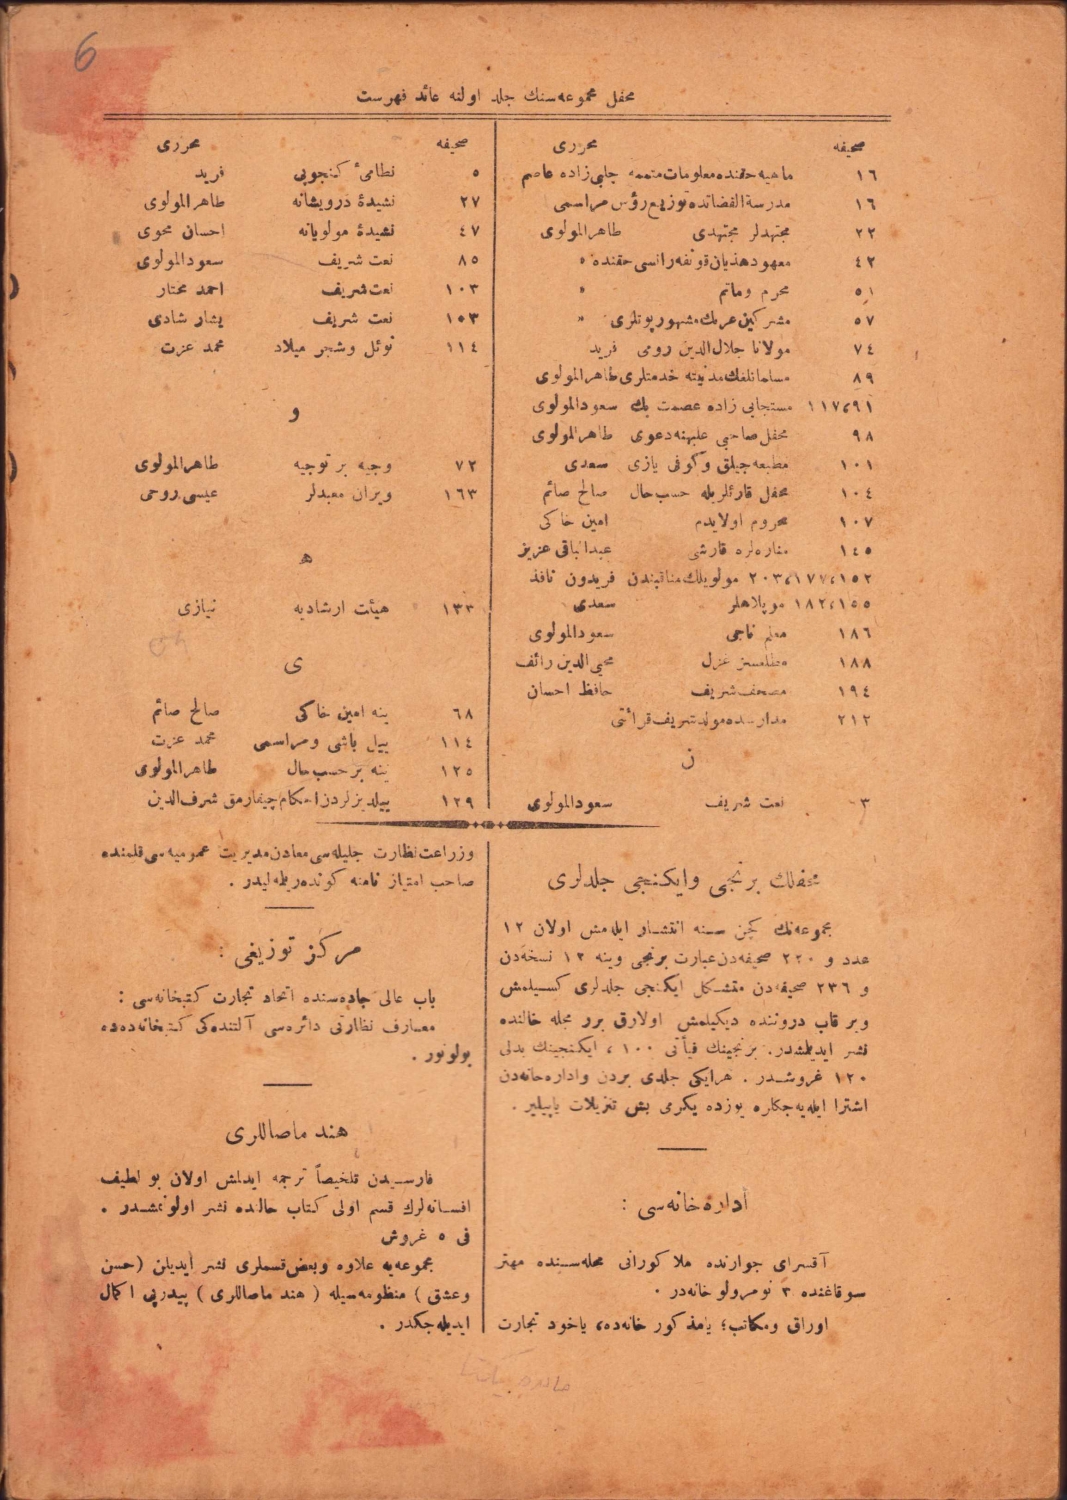 6
محفل مجموعه‌سنك جلد اولنه عائد فهرست
صحیفه محرری
١٦ ماهیه حقنده معلومات متممه چلبی زاده عاصم
١٦ مدرسة القضاتده توزیع رؤس مراسمی
٢٢ مجتهدلر مجتهدی طاهرالمولوی
٤٢ معهود هذیان قونفه‌رانسی حقنده »
٥١ محرم وماتم »
٥٧ مشرکین عربك مشهور پوتلری »
٧٤ مولانا جلال‌الدین رومی فرید
٨٩ مسلمانلغك مدنیته خدمتلری طاهرالمولوی
١١٧،٩١ مستجابی زاده عصمت بك سعودالمولوی
٩٨ محفل صاحبی علیهنه دعوی طاهرالمولوی
١٠١ مطبعه‌جیلق وکوفی یازی سعدی
١٠٤ محفل قارئلریله حسب‌حال صالح صائم
١٠٧ محروم اولایدم امین خاکی
١٤٥ مناره‌لره قارشی عبدالباقی عزیز
٢٠٣،١٧٧،١٥٢ مولویلك مناقبندن فریدون نافذ
١٨٢،١٥٥ موپلاهلر سعدی
١٨٦ معلم ناجی سعودالمولوی
١٨٨ مطلعسز غزل محیی‌الدین رائف
١٩٤ مصحف شریف حافظ احسان
٢١٢ مدارسده مولد شریف قرائتی
ن
٣ نعت شریف سعودالمولوی
صحیفه محرری
٥ نظامئ گنجوی فرید
٢٧ نشیدهٔ درویشانه طاهرالمولوی
٤٧ نشیدهٔ مولویانه احسان محوی
٨٥ نعت شریف سعودالمولوی
١٠٣ نعت شریف احمد مختار
١٥٣ نعت شریف یشار شادی
١١٤ نوئل وشجر میلاد محمد عزت
و
٧٢ وجیه بر توجیه طاهرالمولوی
١٦٣ ویران معبدلر عیسی روحی
ه
١٣٣ هیئت ارشادیه نیازی
ی
٦٨ ینه امین خاکی صالح صائم
١١٤ ییل باشی ومراسمی محمد عزت
١٢٥ ینه بر حسب‌حال طاهرالمولوی
١٢٩ ییلدیزلردن احکام چیقارمق شرف‌الدین
محفلك برنجی وایکنجی جلدلری
مجموعه‌نك کچن سنه انتشار ایله‌مش اولان ١٢
عدد و ٢٢٠ صحیفه‌دن عبارت برنجی وینه ١٢ نسخه‌دن
و ٢٣٦ صحیفه‌دن متشکل ایکنجی جلدلری کسیلمش
وبر قاب دروننده دیکیلمش اولارق برر مجله حالنده
نشر ایدیلمشدر. برنجینك فیأتی ١٠٠ ، ایکنجینك بدلی
١٢٠ غروشدر . هرایکی جلدی بردن واداره‌خانه‌دن
اشترا ایله‌یه‌جکلره یوزده یکرمی بش تنزیلات یاپیلیر .
اداره‌خانه‌سی :
آقسرای جوارنده ملا کورانی محله‌سنده مهتر
سوقاغنده ٣ نومرولو خانه‌در .
اوراق ومکاتب؛ یامذکور خانه‌ده، یاخود تجارت
وزراعت نظارت جلیله‌سی معادن مدیریت عمومیه‌سی قلمنده
صاحب امتیاز نامنه کوندەریلمه‌لیدر .
مرکز توزیعی :
باب عالی جاده‌سنده اتحاد تجارت کتبخانه‌سی :
معارف نظارتی دائره‌سی آلتنده‌کی کتبخانه‌ده‌ده
بولونور .
هند ماصاللری
فارسیدن تلخیصاً ترجمه ایدلمش اولان بو لطیف
افسانه‌لرك قسم اولی کتاب حالنده نشر اولونمشدر .
فی ٥ غروش
مجموعه‌یه علاوه وبعض قسملری نشر ایدیلن (حسن
وعشق ) منظومه‌سیله ( هند ماصاللری ) پیدرپی اکمال
ایدیله‌جکدر .